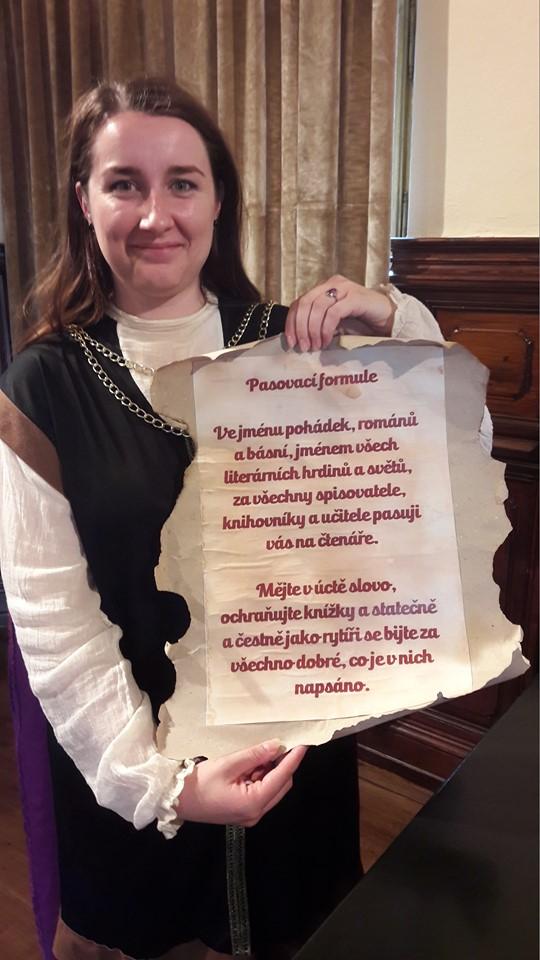 Pasovací formule
Ve jménu pohádek, románů
a básní, jménem všech
literárních hrdinů a světů,
za všechny spisovatele,
knihovníky a učitele pasuji
vás na čtenáře.
Mějte v úctě slovo,
ochraňujte knížky a statečně
a čestně jako rytíři se bijte za
všechno dobré, co je v nich
napsáno.